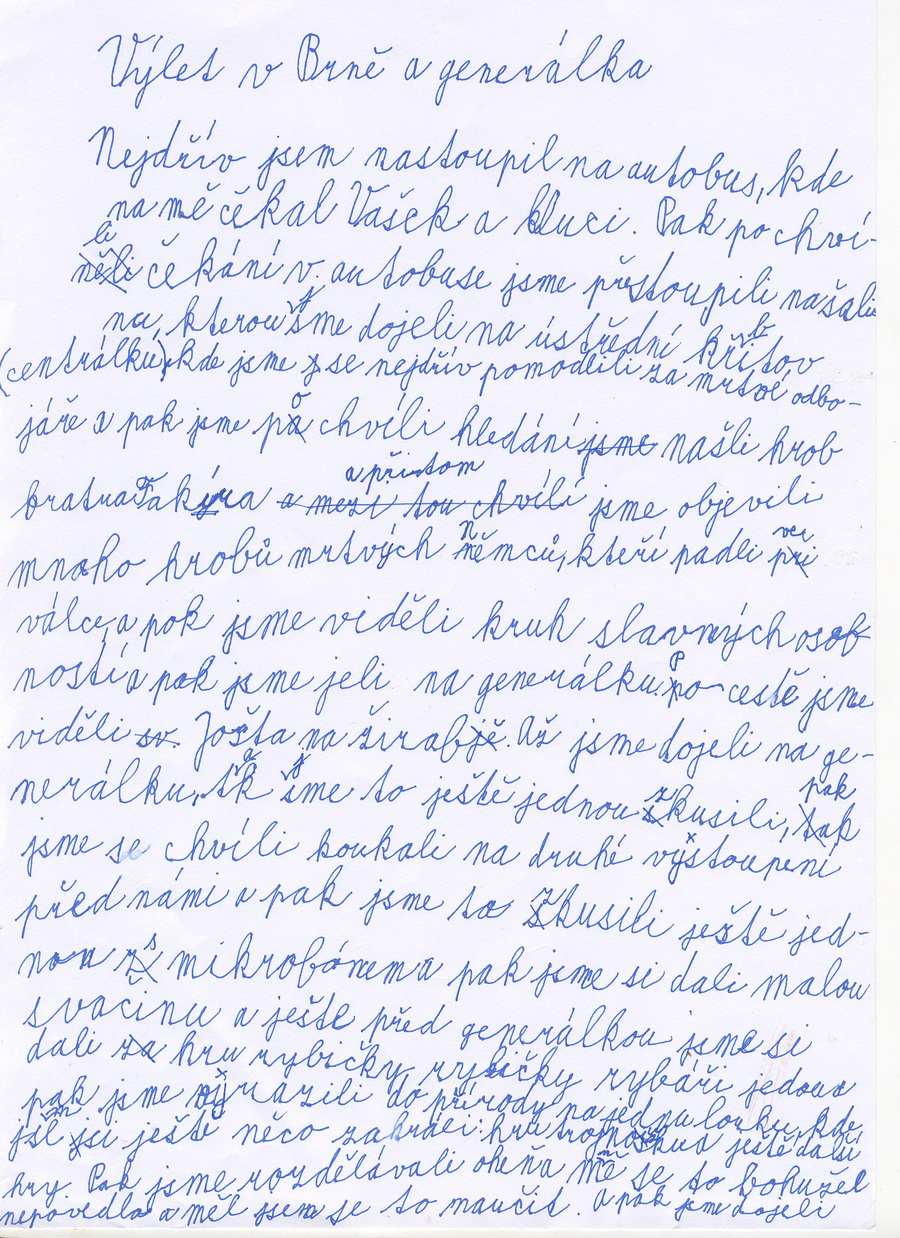 Výlet v Brně a generálka
Nejdřív jsem nastoupil na autobus, kde
na mě čekal Vašek a kluci. Pak po chví-
li čekání v autobuse jsme přestoupili na šali-
nu, kterou jsme dojeli na ústřední hřbitov
(centrálku), kde jsme se nejdřív pomodlili za mrtvé odbo-
jáře a pak jsme po chvíli hledání jsme našli hrob
bratra Fakýra a přitom a mezi tou chvílí jsme objevili
mnoho hrobů mrtvých Němců, kteří padli ve
válce, a pak jsme viděli kruh slavných osob
ností a pak jsme jeli na generálku. Po cestě jsme
viděli sv. Jošta na žirafě. Až jsme dojeli na ge-
nerálku, tak jsme to ještě jednou zkusili, pak
jsme se chvíli koukali na druhé vystoupení
před námi a pak jsme to zkusili ještě jed-
nou s mikrofonem a pak jsme si dali malou
svačinu a ještě před generálkou jsme si
dali hru rybičky rybičky rybáři jedou a
pak jsme vyrazili do přírody na jednu louku, kde
jsme si ještě něco zahráli: hru a ještě další
hry. Pak jsme rozdělávali oheň a mně se to bohužel
nepovedlo a měl jsem se to naučit. A pak jsme dojeli